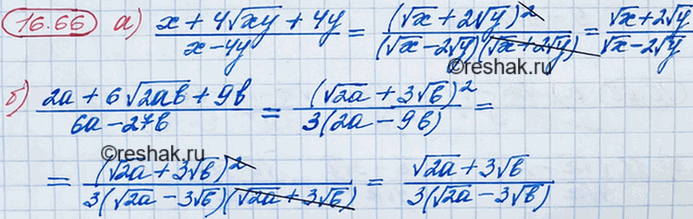 16.66 а) (x + 4√xy + 4y)/(x - 4y) = (√x + 2√y)²/((√x - 2√y)(√x + 2√y)) = (√x + 2√y)/(√x - 2√y)
©reshak.ru
б) (2a + 6√2ab + 9b)/(6a - 27b) = (√2a + 3√b)²/(3(2a - 9b)) =
©reshak.ru
= (√2a + 3√b)²/(3(√2a - 3√b)(√2a + 3√b)) = (√2a + 3√b)/(3(√2a - 3√b))